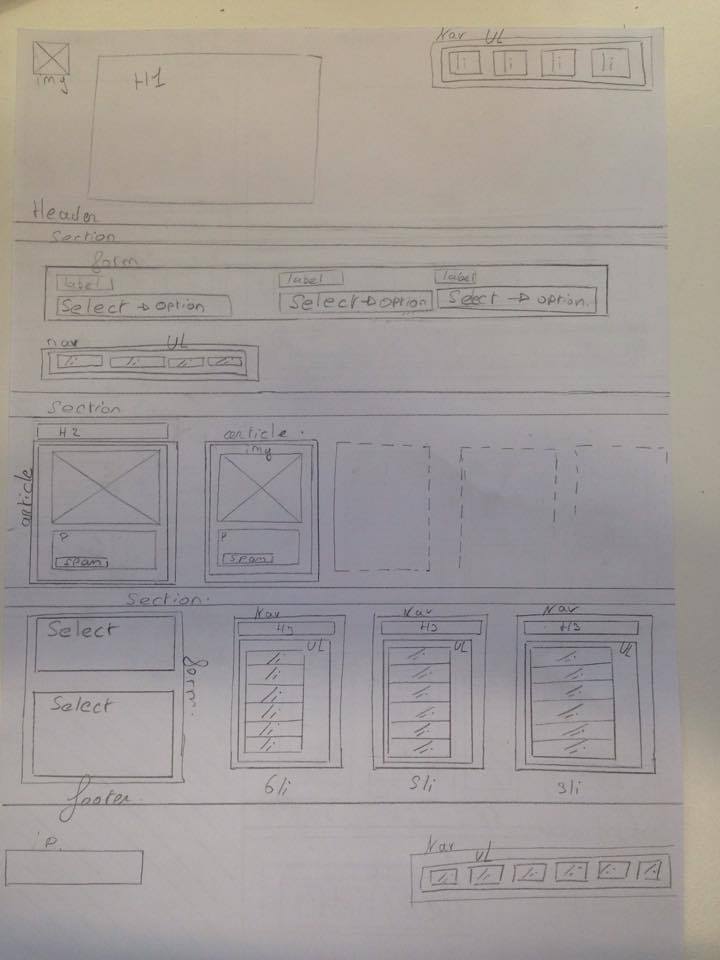 Nav UL
li li li li
img
H1
Header
Section
form
label label label
Select → option Select → option Select → option
nav UL
li li li li
Section
H2
article
article
img
P
span
P
span
Section.
Select
Select
form
Nav
H3
UL
li
li
li
li
li
li
6 li
Nav
H3
UL
li
li
li
li
li
li
5 li
Nav
H3
UL
li
li
li
li
li
li
3 li
footer
P.
Nav UL
li li li li li li